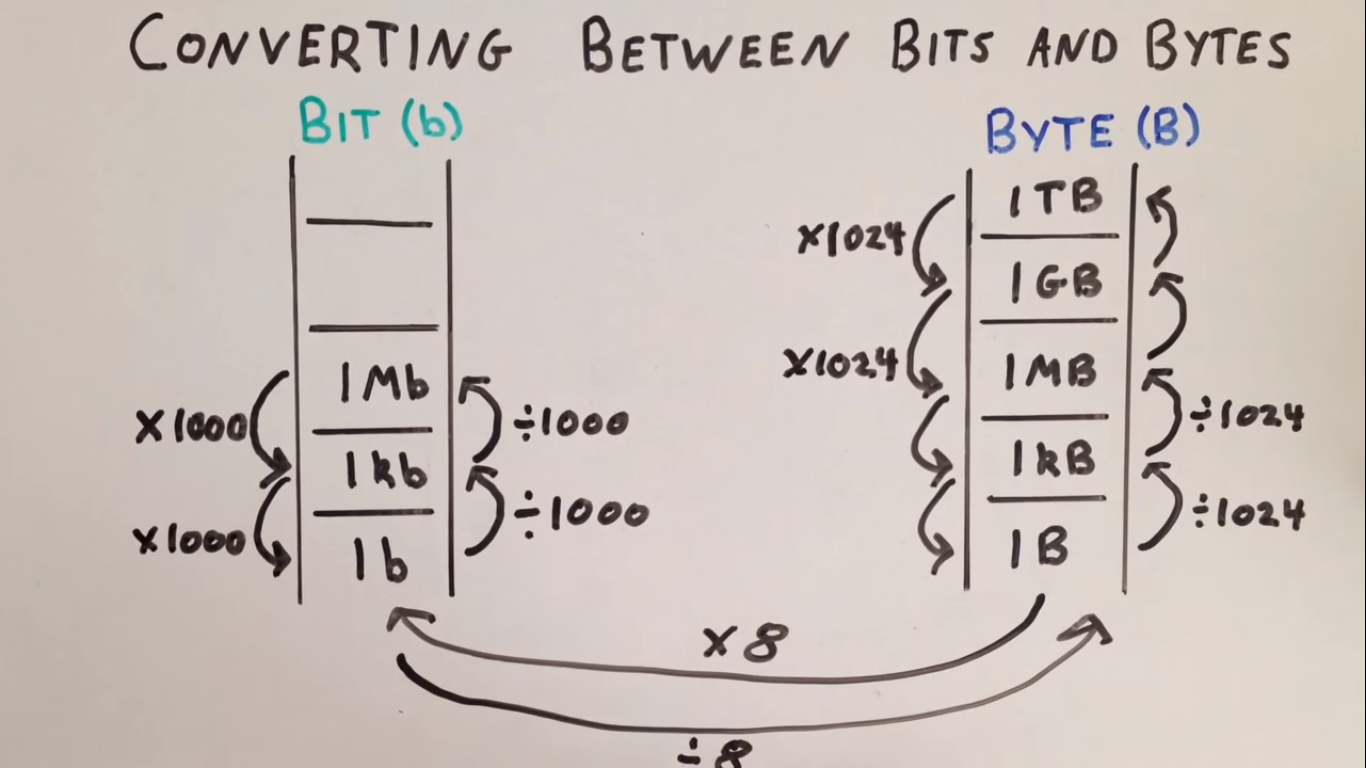 CONVERTING BETWEEN BITS AND BYTES
BIT (b)
BYTE (B)
1 Mb
1 kb
1 b
x1000
x1000
÷1000
÷1000
1 TB
1 GB
1 MB
1 kB
1 B
x1024
x1024
÷1024
÷1024
x 8
÷8